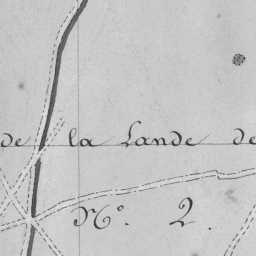 de la Lande de
N.º 2.